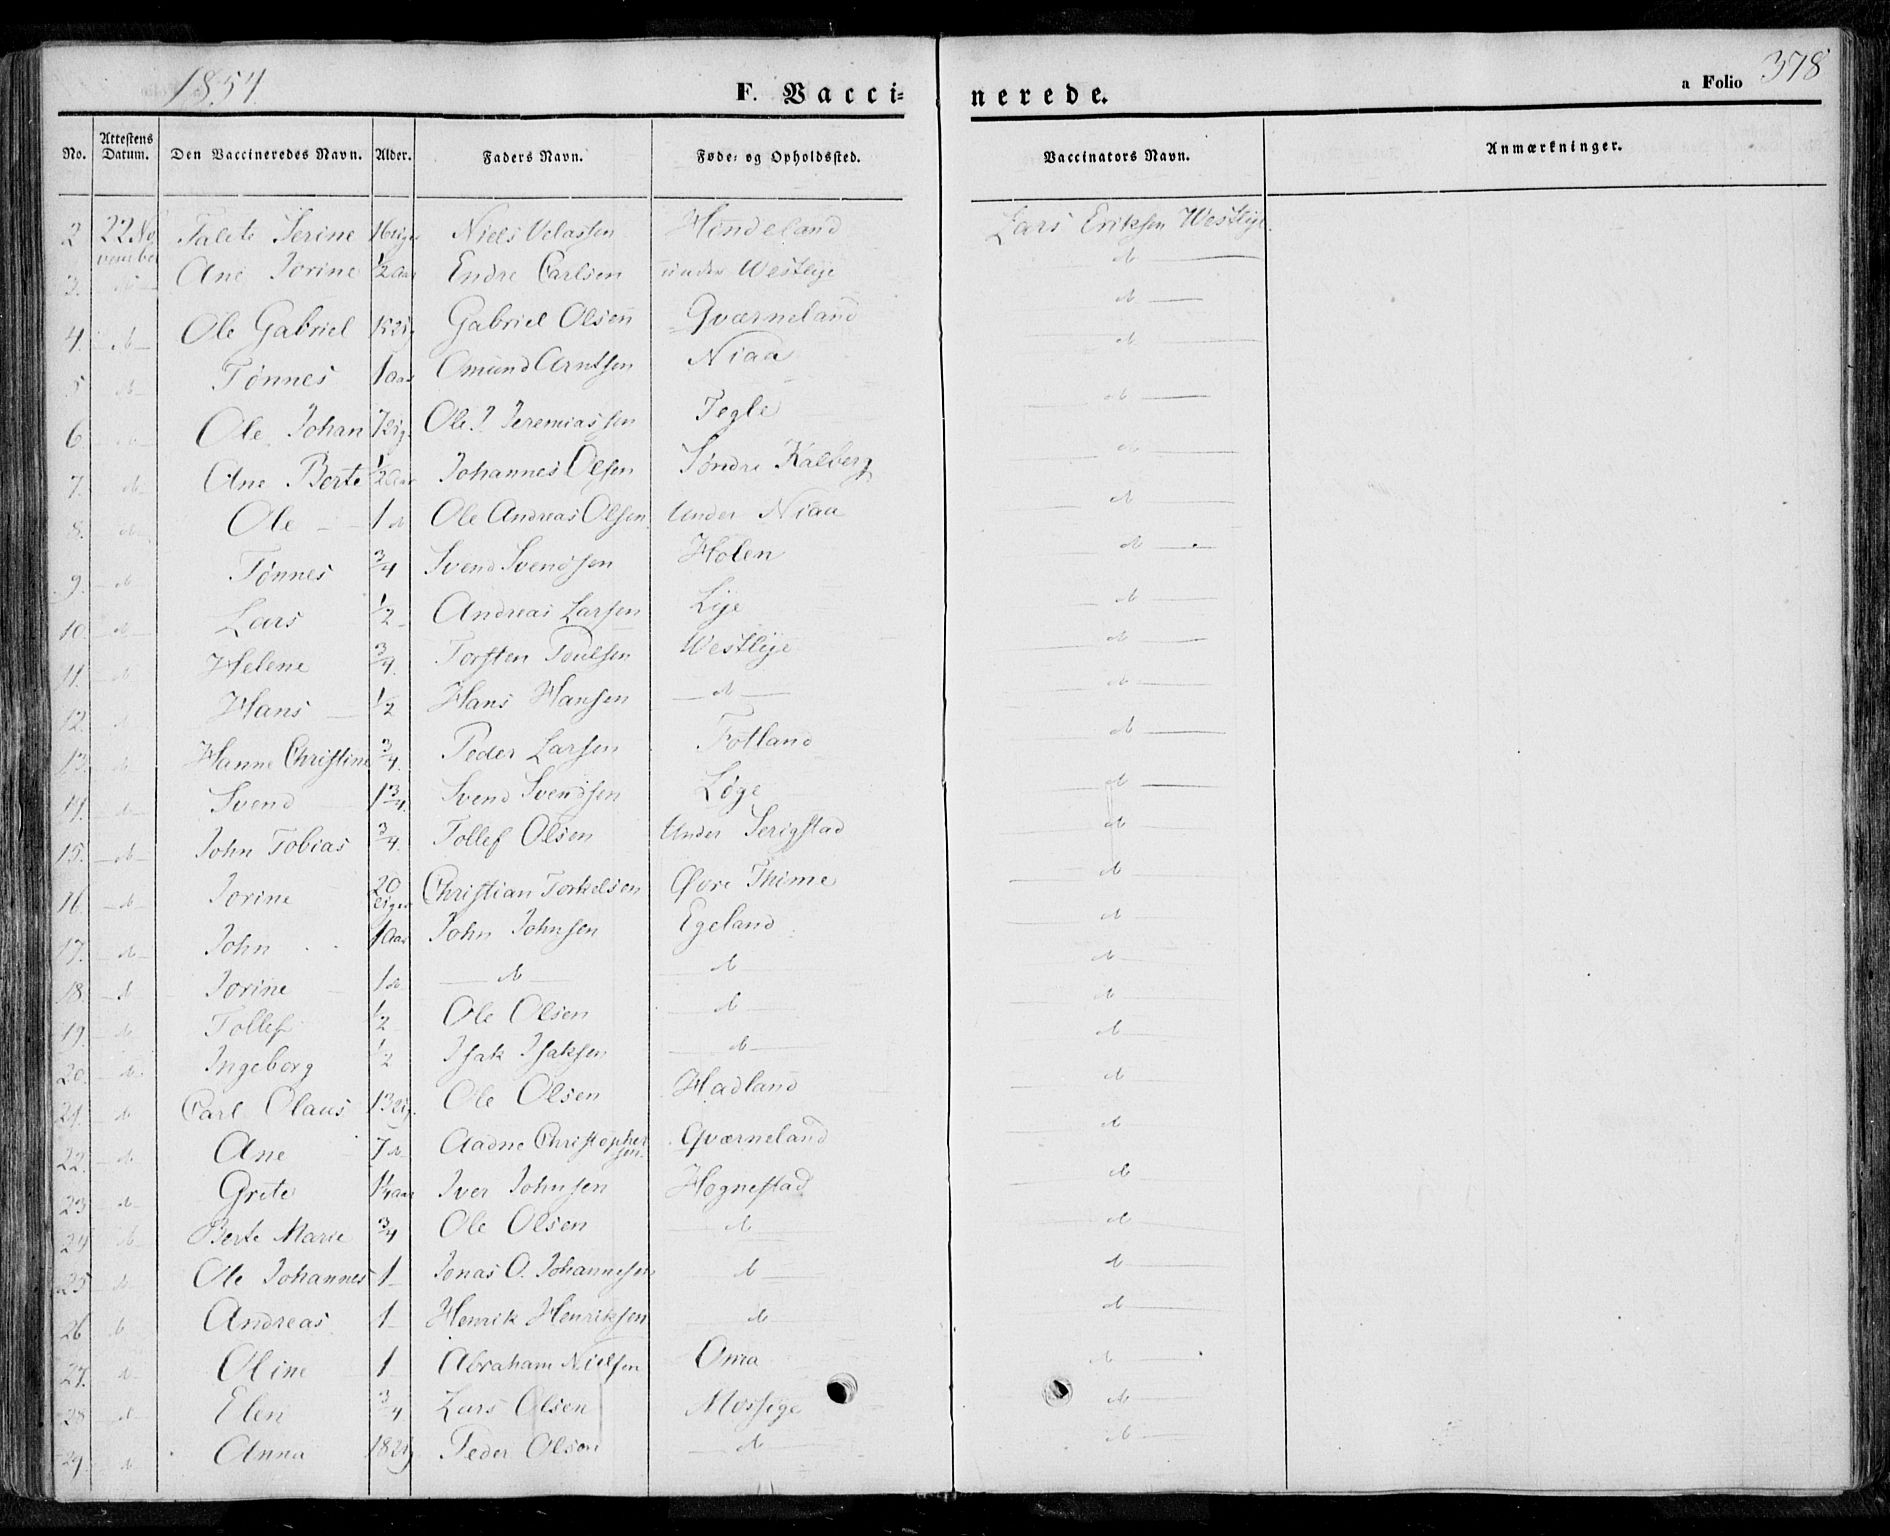 1854 F. Vaccinerede. a Folio 378
No. Attestens Datum. Den Vaccineredes Navn. Alder. Faders Navn. Føde- og Opholdssted. Vaccinators Navn. Anmærkninger.
2 22 November Talete Serine 16 Niels Velassen Hindeland Lars Eriksen Westlye
3. d Ane Jorine 1/2 Aar Endre Carlsen under Westlye d
4. d Ole Gabriel Gabriel Olsen Qværneland d
5 d Tønnes 1 Aar Omund Arntsen Niaa d
6. d Ole Johan Ole J Jeremiassen Tegle d
7. d Ane Berte 1/2 Aar Johannes Olsen Søndre Kalberg d
8. d Ole 1 d Ole Andreas Olsen Under Niaa d
9. d Tønnes 3/4 Svend Svendsen Holen d
10. d Lars 1/2 Andreas Larsen Lye d
11. d Helene 3/4. Torsten Poulsen Westlye d
12. d Hans 1/2 Hans Hansen d d
13. d Hanne Christine 3/4. Peder Larsen Fotland d
14. d Svend 1 3/4. Svend Svendsen Løge d
15. d John Tobias 3/4. Tollef Olsen Under Serigstad d
16. d Jorine 20 Uger Christian Torkelsen Øvre Thime d
17. d John 1 Aar John Johnsen Egeland d
18. d Jorine 1 d d d d
19. d Tollef 1/2 Ole Olsen d d
20. d Ingeborg 1/2 Isak Isaksen d d
21. d Carl Olaus 13 Ug. Ole Olsen Hadland d
22. d Ane 7 d Aadne Christophersen Qværneland d
23 d Grete 1 1/4 Aar Iver Johnsen Hognestad d
24 d Berte Marie 3/4 Ole Olsen d d
25 d Ole Johannes 1 Jonas O. Johannesen d d
26 d Andreas 1 Henrik Henriksen d d
27. d Oline 1 Abraham Nielsen Oma d
28 d Elen 3/4 Lars Olsen Mossige d
29. d Anna 18 Ug Peder Olsen d d